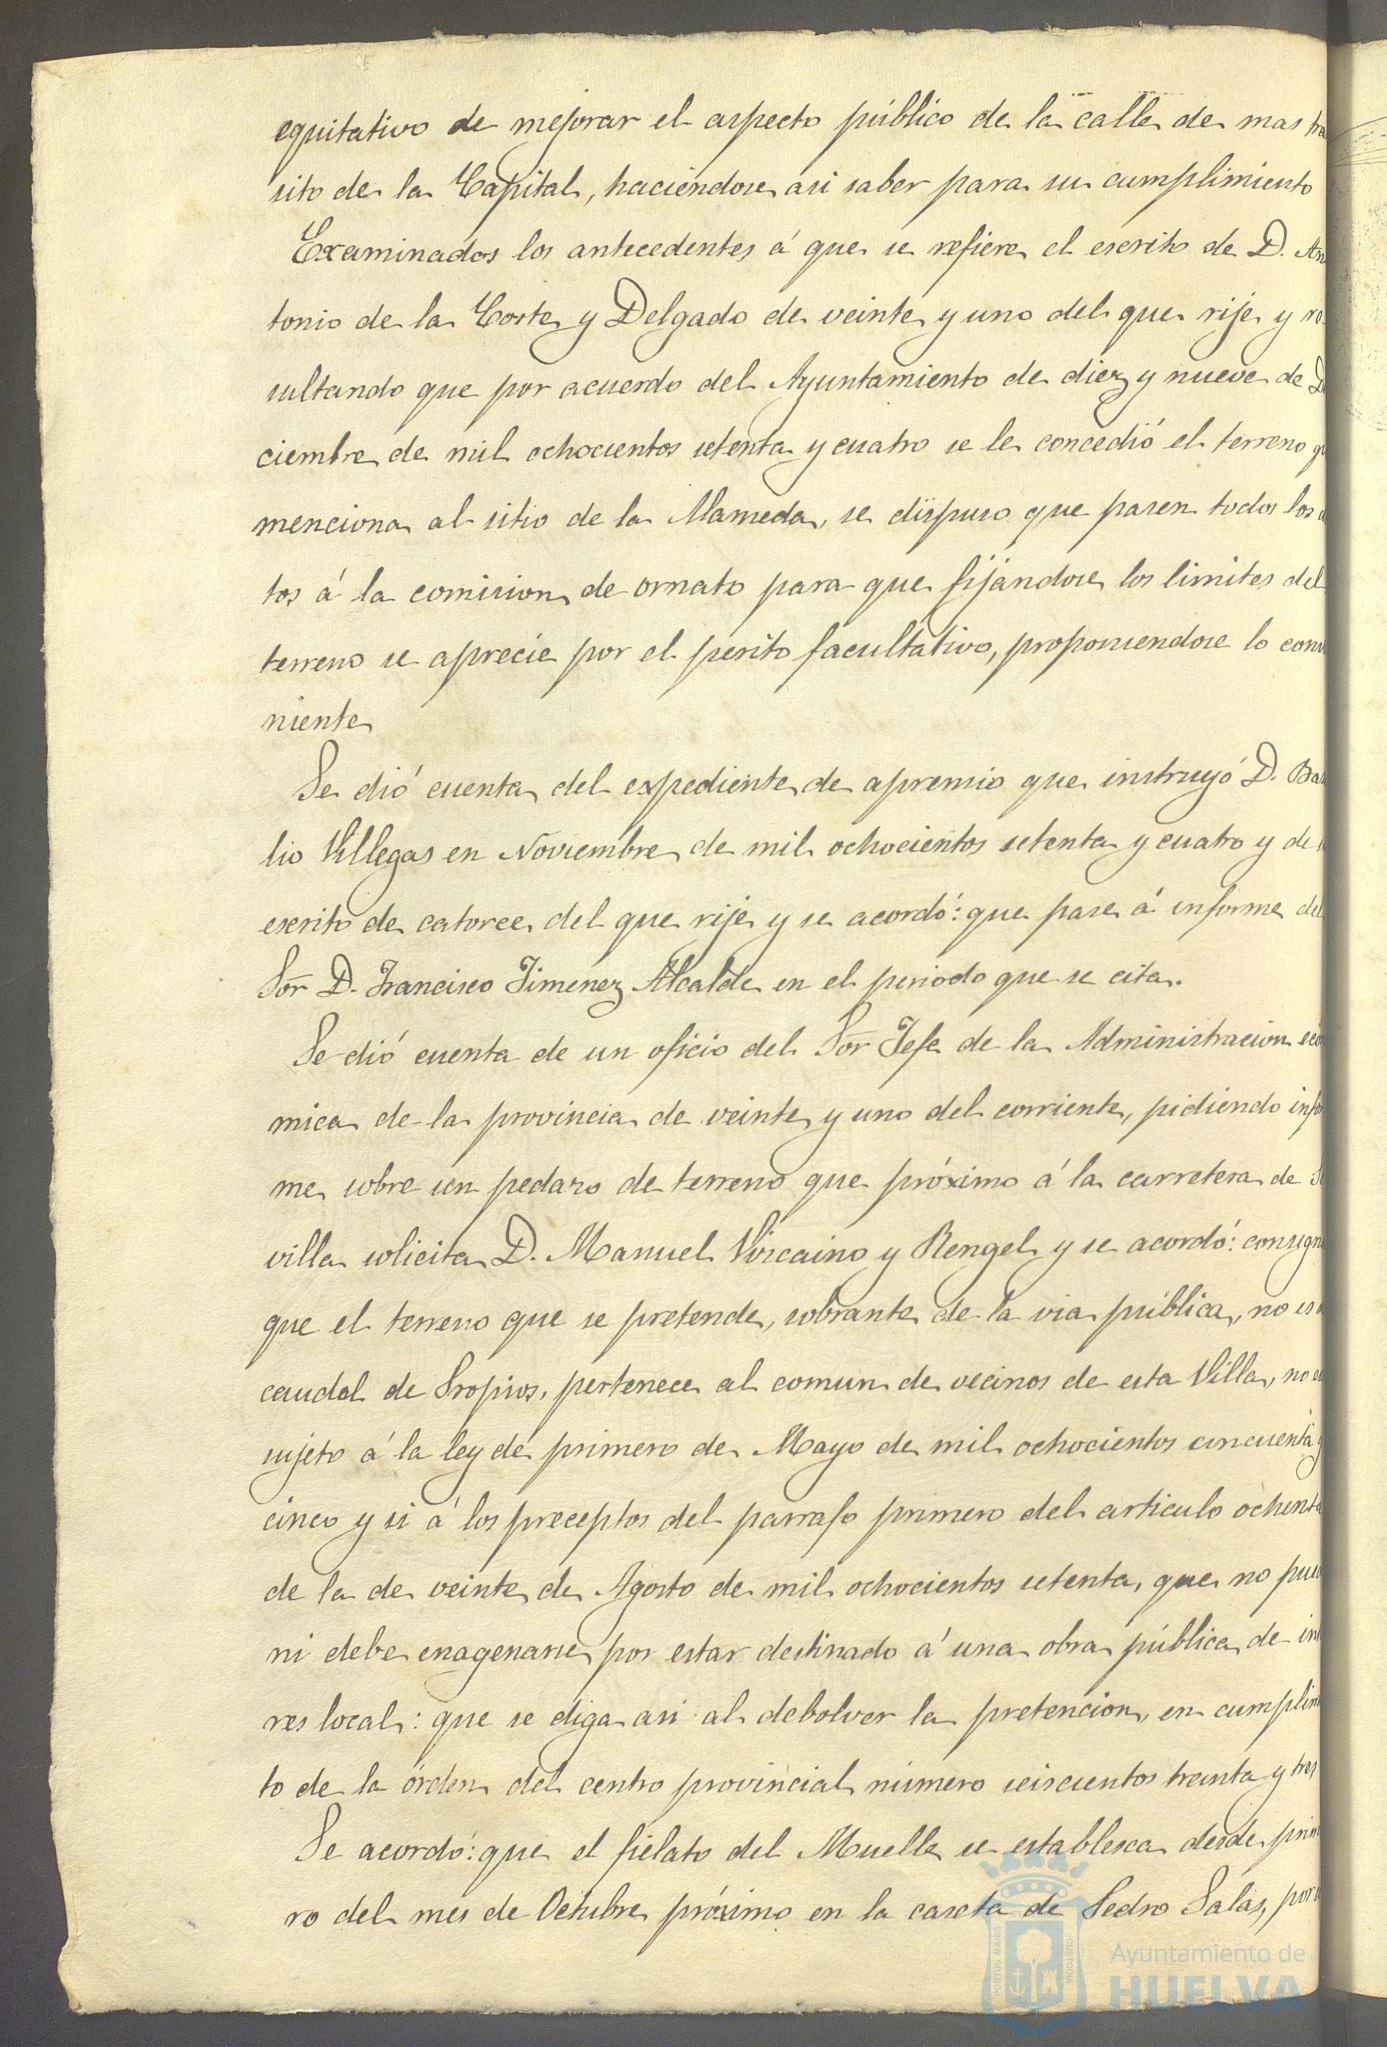 equitativo de mejorar el aspecto público de la calle de mas tra
sito de la Capital, haciéndose asi saber para su cumplimiento
Examinados los antecedentes á que se refiere el escrito de D. An
tonio de la Corte y Delgado de veinte y uno del que rije y re
sultando que por acuerdo del Ayuntamiento de diez y nueve de Di
ciembre de mil ochocientos setenta y cuatro se le concedió el terreno q
menciona al sitio de la Alameda, se dispuso que pasen todos los a
tos á la comision de ornato para que fijándose los limites del
terreno se aprecie por el perito facultativo, proponiendose lo conv
niente
Se dió cuenta del expediente de apremio que instruyó D. Bas
lio Villegas en Noviembre de mil ochocientos setenta y cuatro y de
escrito de catorce del que rije y se acordó: que pase á informe del
Sor D. Francisco Jimenez Alcalde en el periodo que se cita.
Se dió cuenta de un oficio del Sor Jefe de la Administracion eco
mica de la provincia de veinte y uno del corriente, pidiendo infor
me sobre un pedazo de terreno que próximo á la carretera de S
villa solicita D. Manuel Vizcaino y Rengel y se acordó: consign
que el terreno que se pretende, sobrante de la via pública, no es
caudal de Propios, pertenece al comun de vecinos de esta Villa, no es
sujeto á la ley de primero de Mayo de mil ochocientos cincuenta y
cinco y si á los preceptos del parrafo primero del articulo ochenta
de la de veinte de Agosto de mil ochocientos setenta, que no pue
ni debe enagenarse por estar destinado á una obra pública de int
res local: que se diga asi al debolver la pretencion, en cumplim
to de la órden del centro provincial número seiscientos treinta y tres
Se acordó: que el fielato del Muelle se establesca desde prim
ro del mes de Octubre próximo en la caseta de Pedro Salas, por
Ayuntamiento de
HUELVA